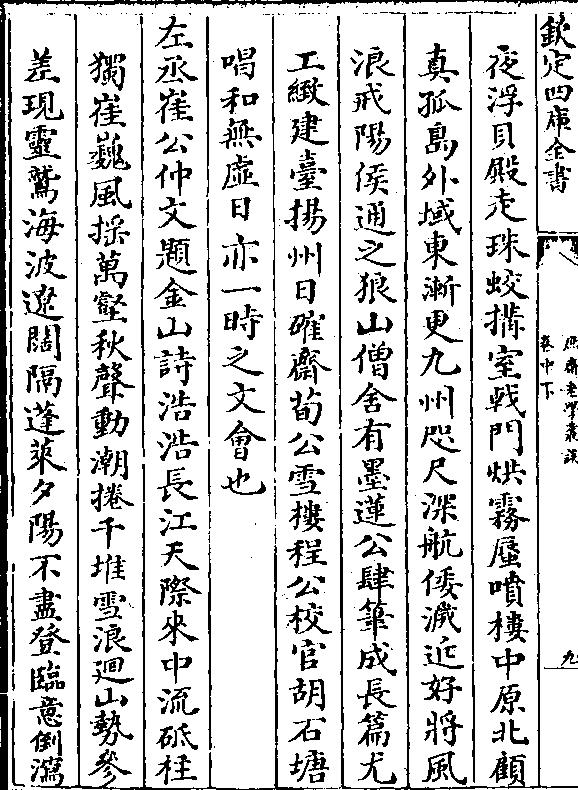 欽定四庫全書
庶齋老學叢談
卷中下
九
夜浮貝殿走珠蛟搆室戰門烘霧蜃噴樓中原北顧
真孤島外域東漸更九州咫尺深航倭濊近好將風
浪戒陽侯通之狼山僧舍有墨蓮公肆筆成長篇尤
工緻建臺揚州日確齋荀公雪樓程公校官胡石塘
唱和無虛日亦一時之文會也
左丞崔公仲文題金山詩浩浩長江天際來中流砥柱
獨崔巍風採萬壑秋聲動潮捲千堆雪浪廻山勢參
差現靈鷲海波遼闊隔蓬萊夕陽不盡登臨意倒瀉